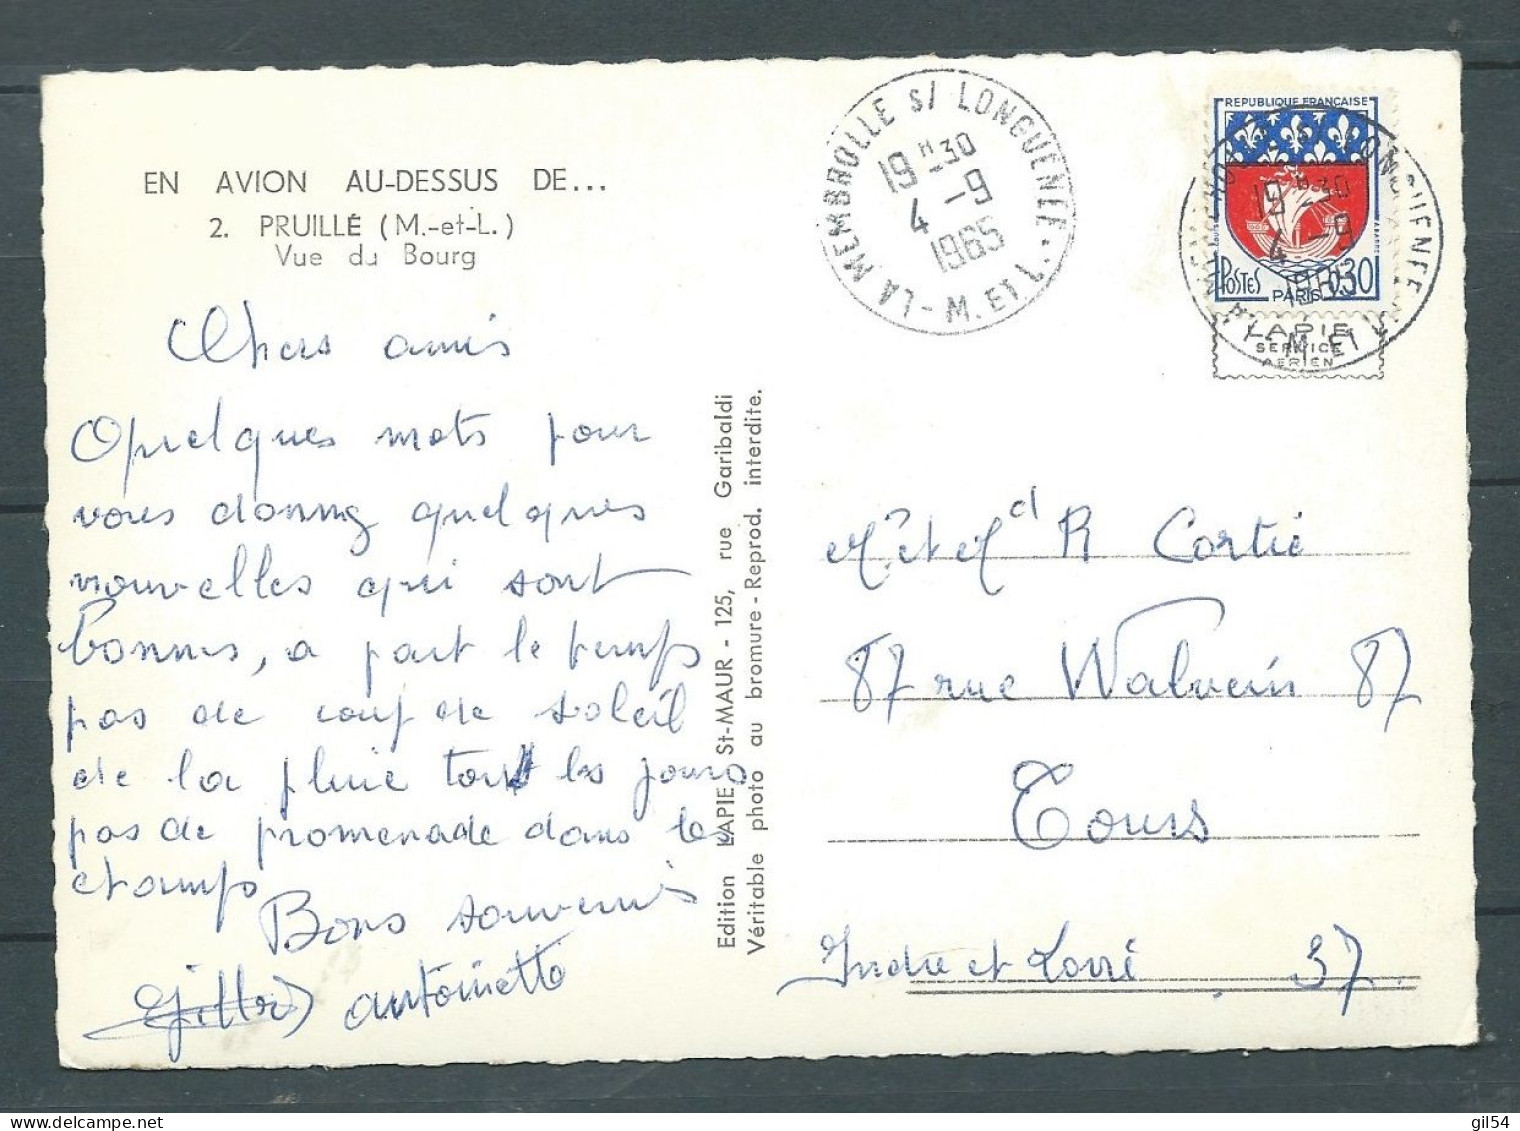 EN AVION AU-DESSUS DE...
2. PRUILLÉ (M.-et-L.)
Vue du Bourg
Chers amis
Quelques mots pour
vous donner quelques
nouvelles qui sont
bonnes, a part le temps
pas de coup de soleil
de la pluie tout les jours
pas de promenade dans les
champs
Bons souvenirs
antoinette
Edition LAPIE St-MAUR - 125, rue Garibaldi
Véritable photo au bromure - Reprod. interdite.
LA MEMBROLLE S/ LONGUENÉE
19H30
4 -9
1965
M. ET L.
REPUBLIQUE FRANÇAISE
POSTES
PARIS
0,30
LA MEMBROLLE S/ LONGUENÉE
19H30
4 -9
1965
M. ET L.
LAPIE
SERVICE
AERIEN
Mr et Md R Cortié
87 rue Walvein 87
Tours
Indre et Loire 37
delcampe.net
gil54